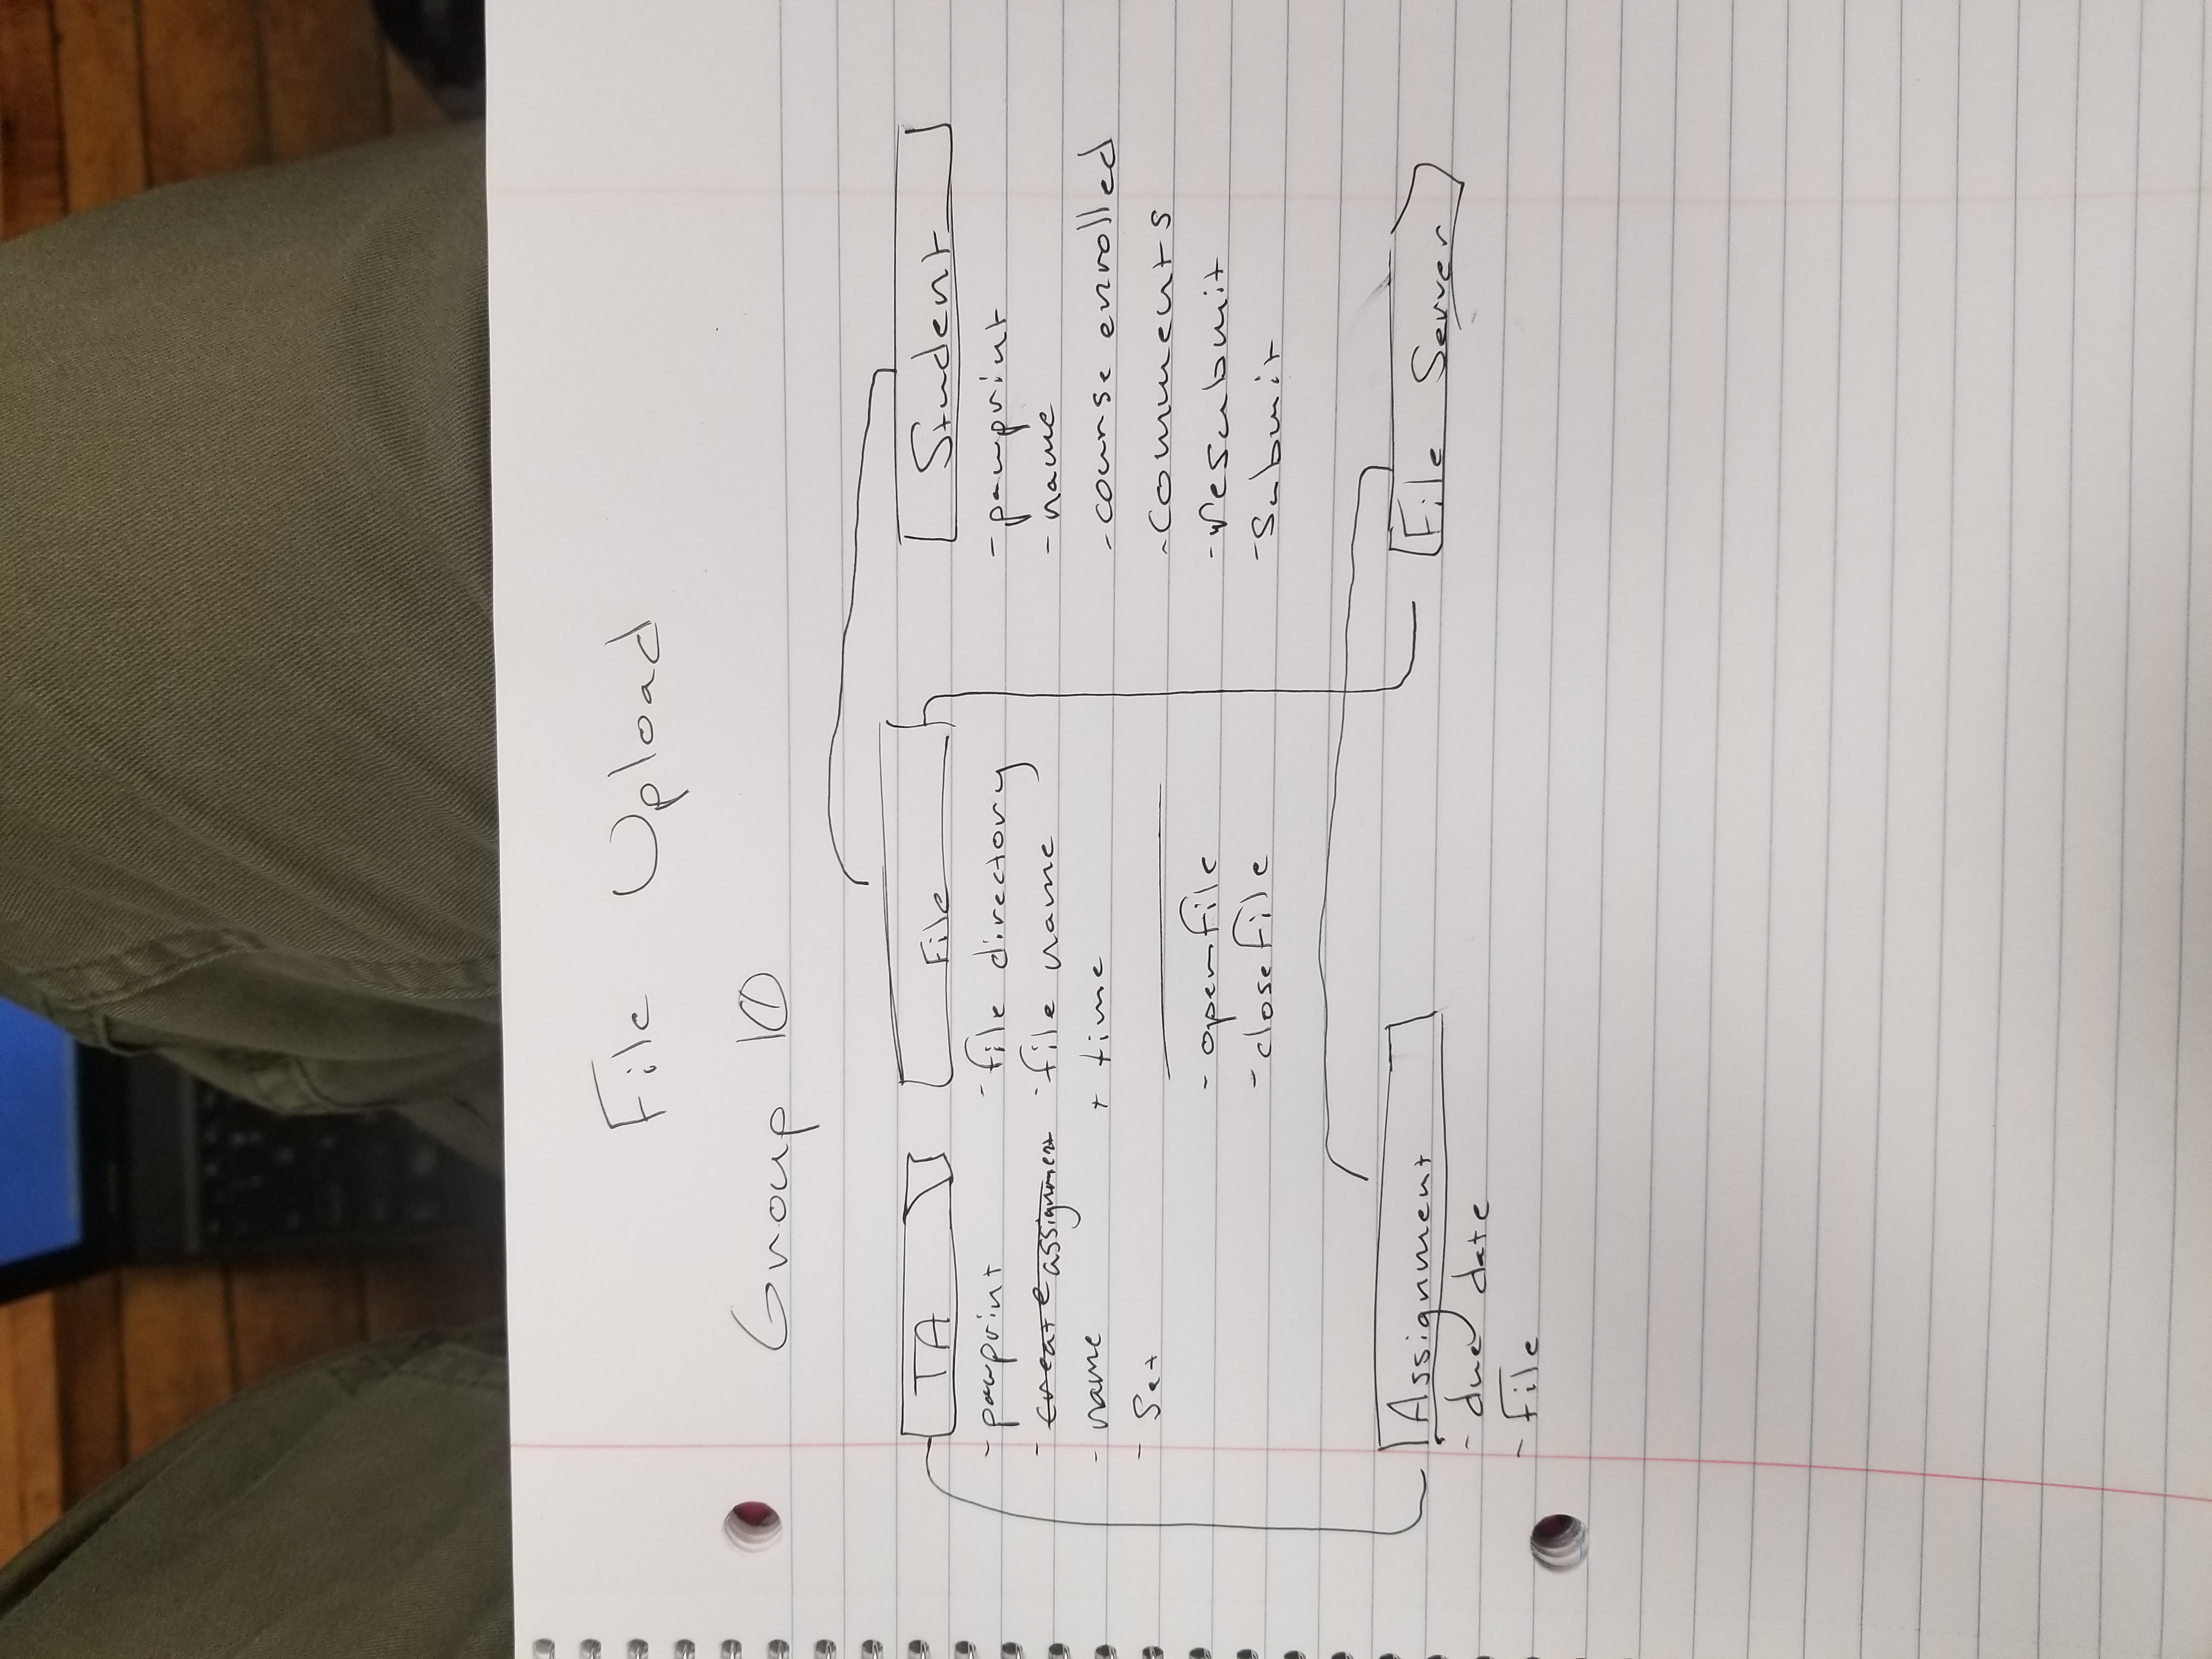 File Upload
Group 10
TA
- pawprint
- create assignment
- name
- Set
File
- file directory
- file name
+ time
- openfile
- closefile
Student
- pawprint
- name
- course enrolled
- comments
- resubmit
- Submit
Assignment
- due date
- file
File Server